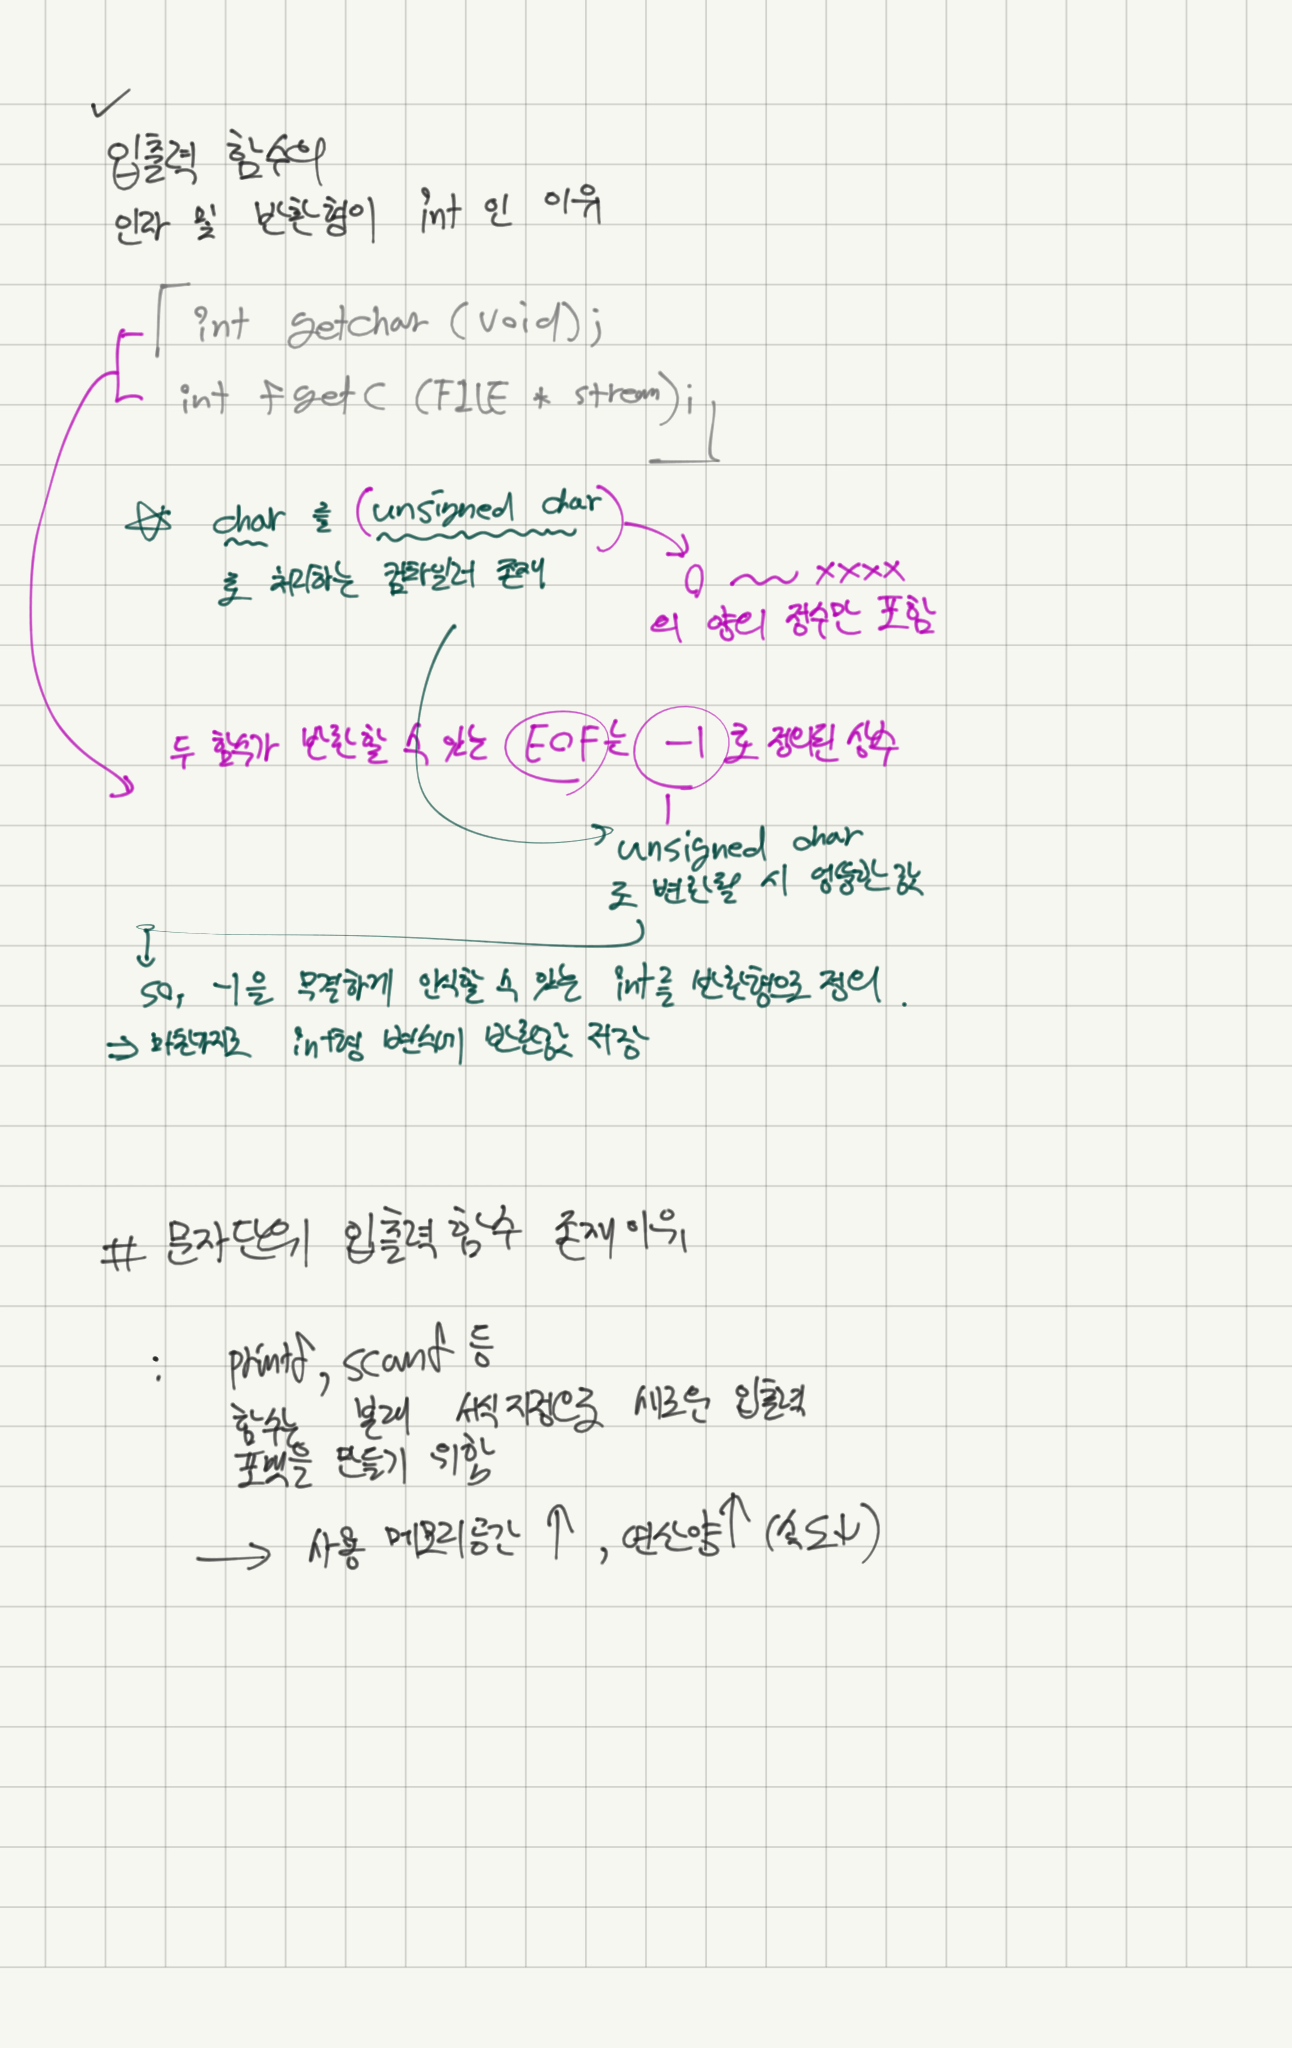 입출력 함수의
인자 및 반환형이 int 인 이유
int getchar (void);
int fgetc (FILE * stream);
☆ char 를 (unsigned char)
로 처리하는 컴파일러 존재
0 ~ xxxx
의 양의 정수만 포함
두 함수가 반환할 수 있는 EOF는 -1 로 정의된 상수
unsigned char
로 변환될 시 엉뚱한 값
so, -1을 무결하게 인식할 수 있는 int를 반환형으로 정의.
⇒ 마찬가지로 int형 변수에 반환값 저장
# 문자단위 입출력 함수 존재이유
: printf, scanf 등
함수는 본래 서식지정으로 새로운 입출력
포맷을 만들기 위함
→ 사용 메모리공간 ↑, 연산량↑ (속도↓)